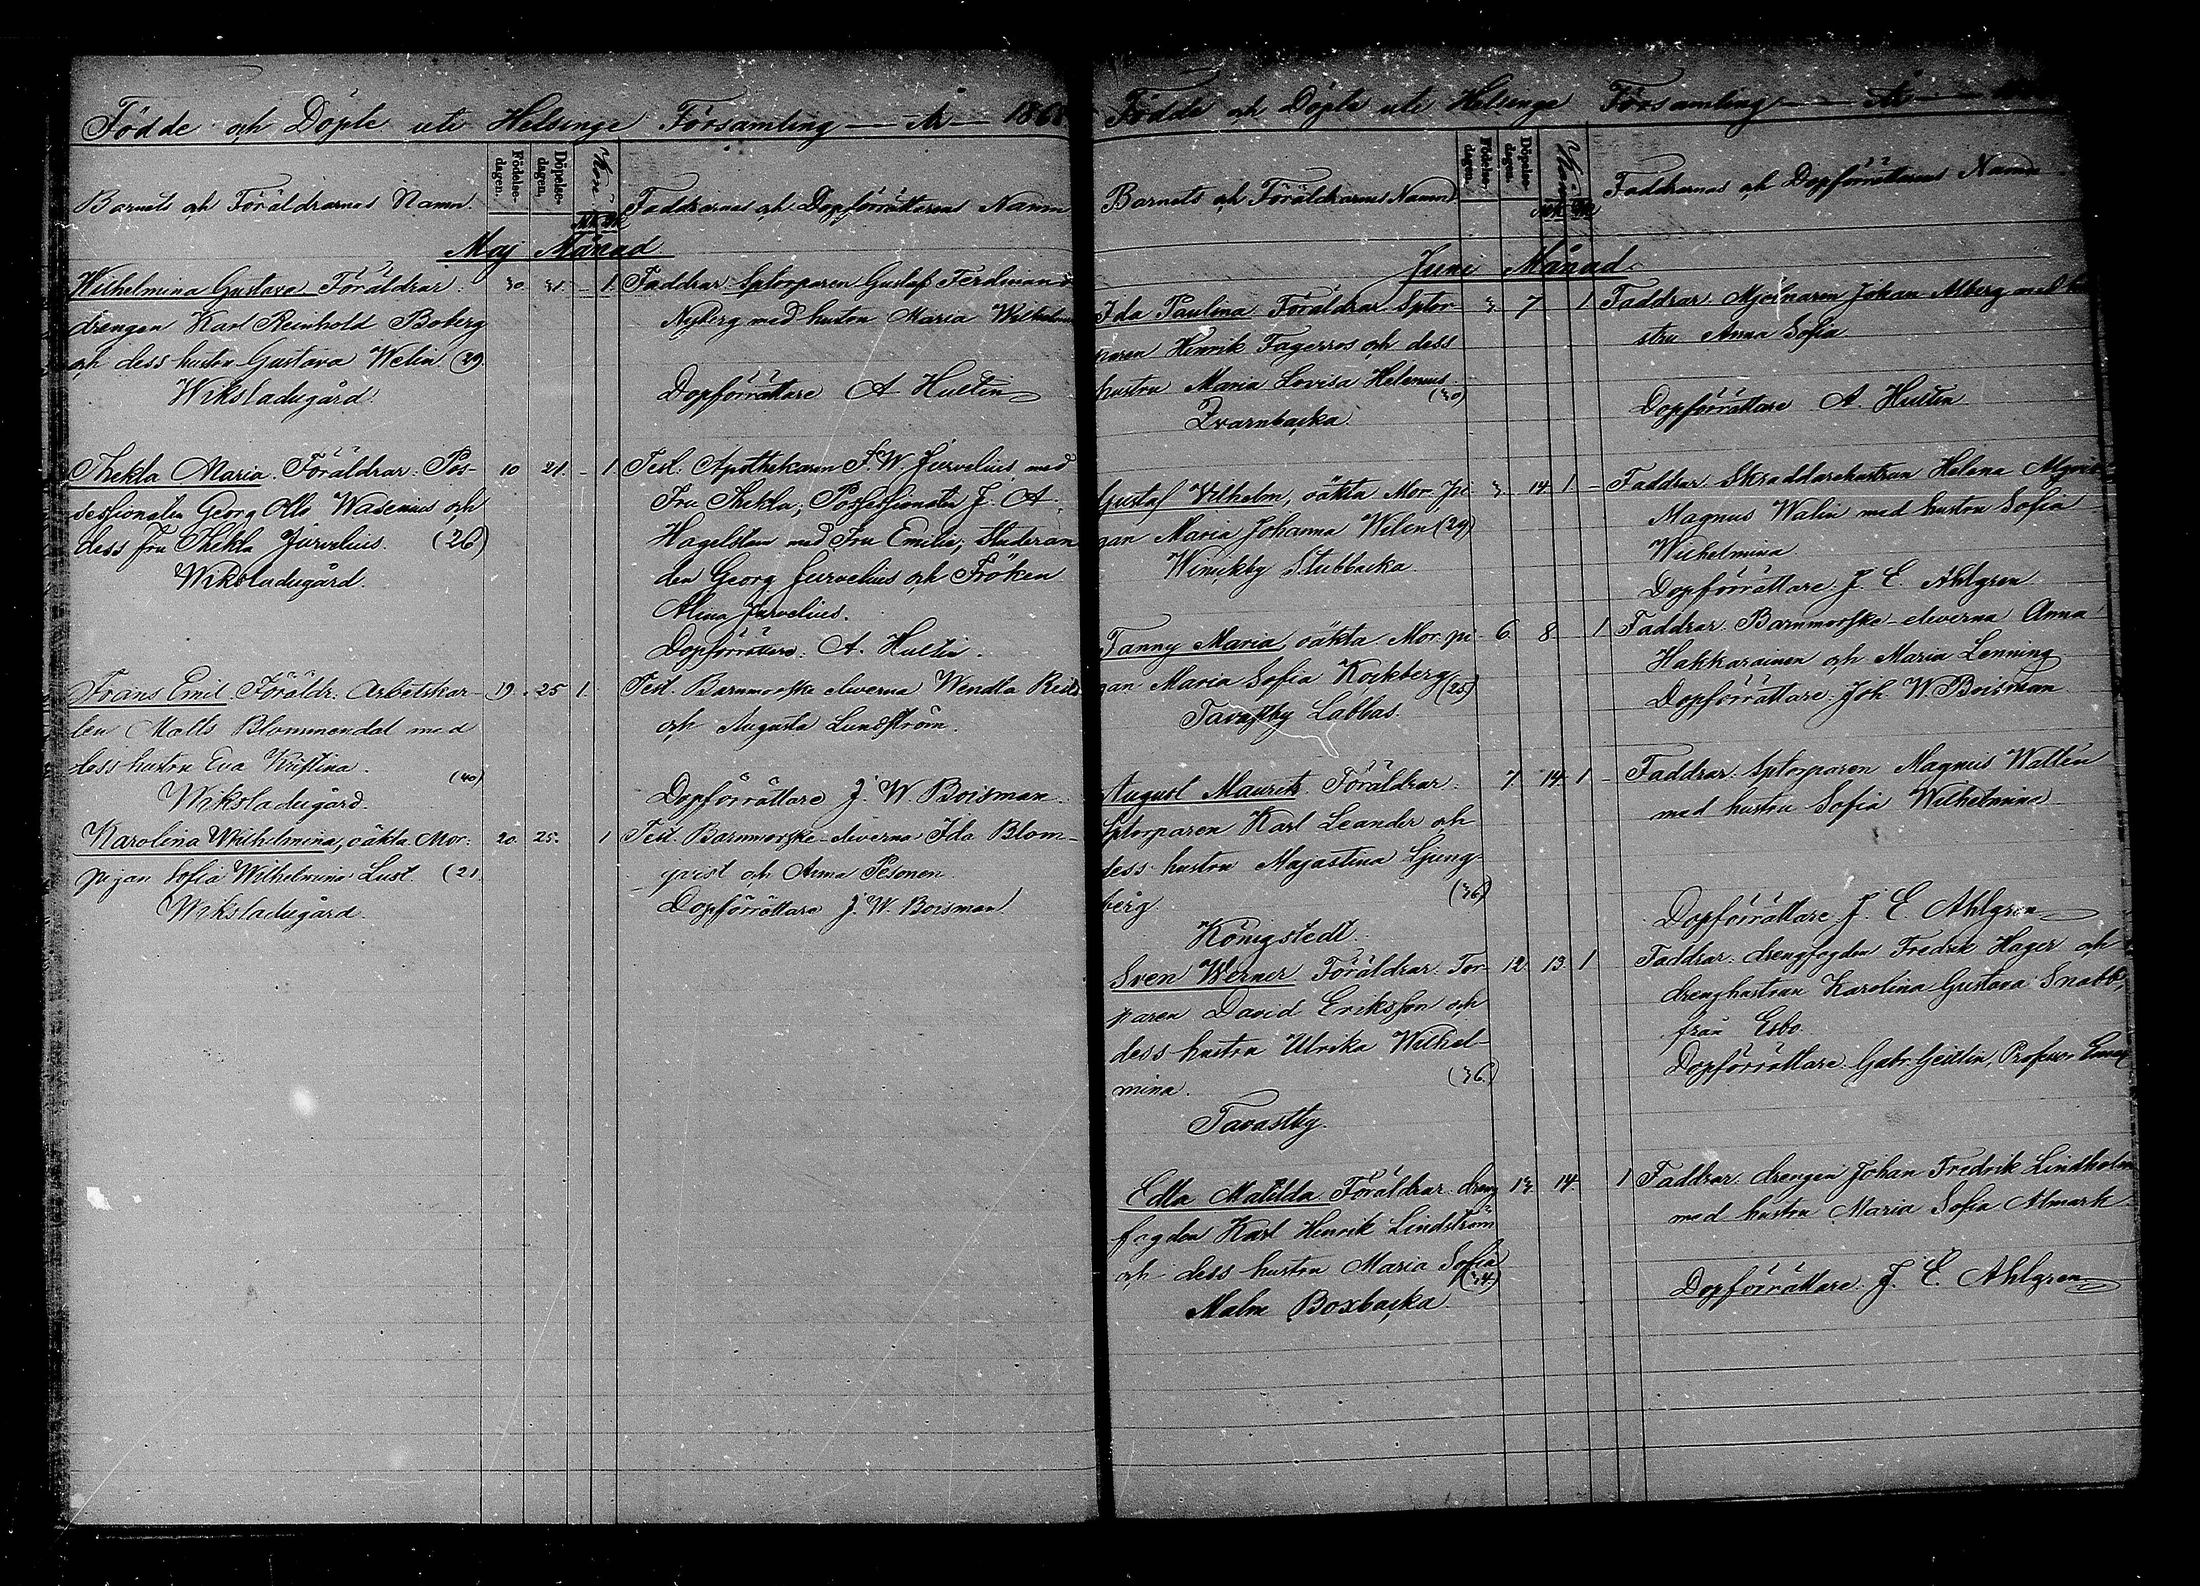 Födde och Döpte uti Helsinge Församling — År — 186
Barnets och Föräldrarnes Namn.
Födelse-dagen.
Döpelse-dagen.
Kön.
Mk
Qk
Faddrarnes och Dopförrättarens Namn
Maj Månad
Wilhelmina Gustava Föräldrar: 30. 31. - 1 Faddrar: Sptorparen Gustaf Ferdinand
drengen Karl Reinhold Boberg Nyberg med hustru Maria Wilhelmina
och dess hustru Gustava Welin. (29)
Wiksladugård. Dopförrättare A Hultin
Thekla Maria. Föräldrar: Pos- 10 21. - 1 Test: Apothekaren F. W. Jurvelius, med
sessionaten Georg Otto Wasenius och Fru Thekla; Possessionaten J. A.
dess fru Thekla Jurvelius. (26) Hagelstam med Fru Emilia; Studeran
Wiksladugård. den Georg Jurvelius och Fröken
Alina Jurvelius.
Dopförrättare: A. Hultin.
Frans Emil Föräldr: Arbetskar- 19. 25 1. Test. Barnmorske eleverna Wendla
len Matts Blommendal med och Augusta Lundström.
dess hustru Eva Kristina. (40)
Wiksladugård. Dopförrättare J. W. Boisman.
Karolina Wilhelmina, oäkta. Mor: 20. 25. 1 Test. Barnmorske-eleverna Ida Blom-
pigan Sofia Wilhelmina Lust. (21. qvist och Anna Pesonen.
Wiksladugård. Dopförrättare J. W. Boisman.
Födde och Döpte uti Helsinge Församling — År —
Barnets och Föräldrarnes Namn
Födelse-dagen.
Döpelse-dagen.
Kön
Mk
Qk
Faddrarnes och Dopförrättarens Namn
Juni Månad.
Ida Paulina Föräldrar: Sptor- 3. 7 1 Faddrar: Mjölnaren Johan Alberg med hu
paren Henrik Fagerros och dess stru Anna Sofia
hustru Maria Lovisa Helenius.
(30) Dopförrättare A. Hultin
Qvarnbacka.
Gustaf Vilhelm, oäkta Mor: pi 3. 14. 1 - Faddrar Skräddarehustrun Helena
gan Maria Johanna Welen (29) Magnus Walin med hustru Sofia
Winickby Stubbacka. Wilhelmina.
Dopförrättare J. E. Ahlgren
Fanny Maria, oäkta. Mor: pi- 6. 8 1 Faddrar. Barnmorske-eleverna Anna
gan Maria Sofia Kockberg (25) Hakkarainen och Maria Lenning
Tavastby Labbas. Dopförrättare. Joh W. Boisman
August Maurits. Föräldrar. 7. 14. 1 - Faddrar. Sptorparen Magnus Wallén
Sptorparen Karl Leander och med hustru Sofia Wilhelmina
dess hustru Majastina Ljung-
berg. (36)
Königstedt. Dopförrättare J. E. Ahlgren
Sven Werner Föräldrar. Tor- 12. 13. 1 Faddrar. drengfogden Fredrik Hager och
paren David Eriksson och drenghustrun Karolina Gustava Snabb,
dess hustru Ulrika Wilhel- från Esbo.
mina. (36.) Dopförrättare. Gabr. Geitlin, Professor
Tavastby.
Edla Matilda Föräldrar. dreng 13. 14. 1 Faddrar. drengen Johan Fredrik Lindholm
fogden Karl Henrik Lindström med hustru Maria Sofia Almark
och dess hustru Maria Sofia
(34) Dopförrättare. J. E. Ahlgren
Malm Boxbacka.